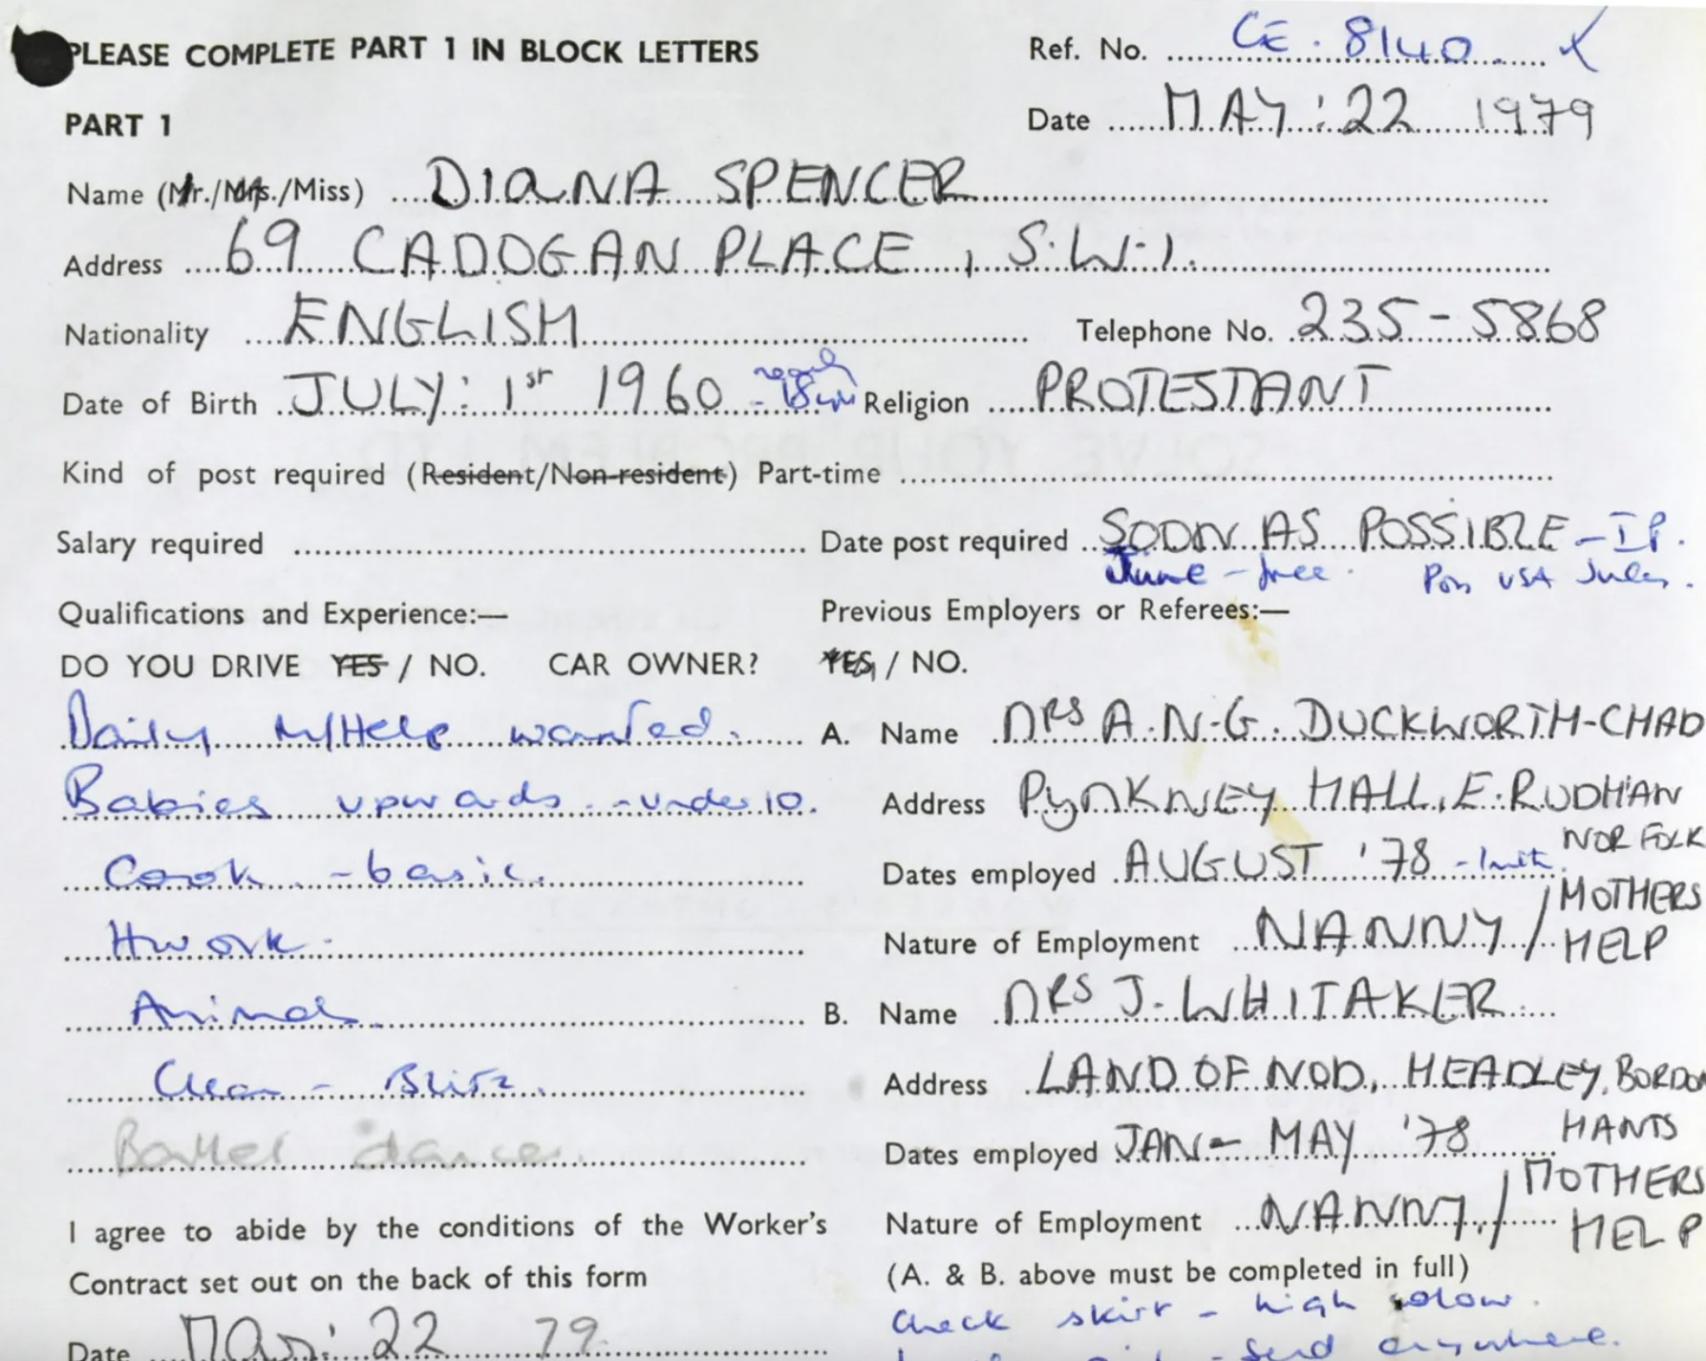 PLEASE COMPLETE PART 1 IN BLOCK LETTERS
Ref. No. CE. 8140.
PART 1
Date MAY: 22 1979
Name (Mr./Mrs./Miss) DIANA SPENCER
Address 69 CADOGAN PLACE, S.W.1.
Nationality ENGLISH Telephone No. 235-5868
Date of Birth JULY: 1st 1960 Religion PROTESTANT
Kind of post required (Resident/Non-resident) Part-time
Salary required Date post required SOON AS POSSIBLE
June - free. USA
Qualifications and Experience:— Previous Employers or Referees:—
DO YOU DRIVE YES / NO. CAR OWNER? YES / NO.
Daily M/Help wanted. A. Name MRS A.N.G. DUCKWORTH-CHAD
Babies upwards - under 10. Address PYNKNEY HALL, E. RUDHAN
NORFOLK
Cook - basic. Dates employed AUGUST '78
Hwork. Nature of Employment NANNY / MOTHERS HELP
Animals B. Name MRS J. WHITAKER
Clean - Blitz. Address LAND OF NOD, HEADLEY, BORDON
HANTS
Ballet dance. Dates employed JAN - MAY '78
I agree to abide by the conditions of the Worker's Nature of Employment NANNY / MOTHERS HELP
Contract set out on the back of this form (A. & B. above must be completed in full)
check skirt - high
Date May: 22 79.
- send anywhere.